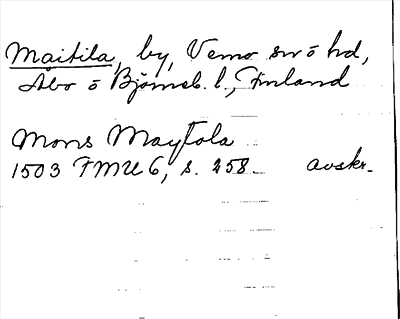 Maitila, by, Vemo sn ö hd,
Åbo ö Björneb. l., Finland
Mons Maytola
1503 FMU 6, s. 258 avskr.